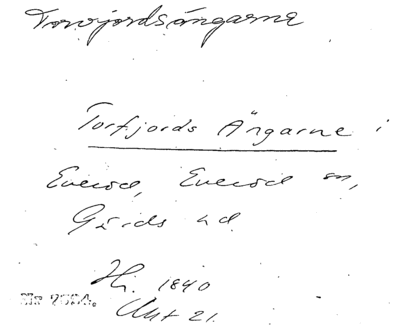 Torvjordsängarne
Torfjords Ängarne i
Everöd, Everöd sn,
Gärds hd.
Hi. 1840
Akt 21.